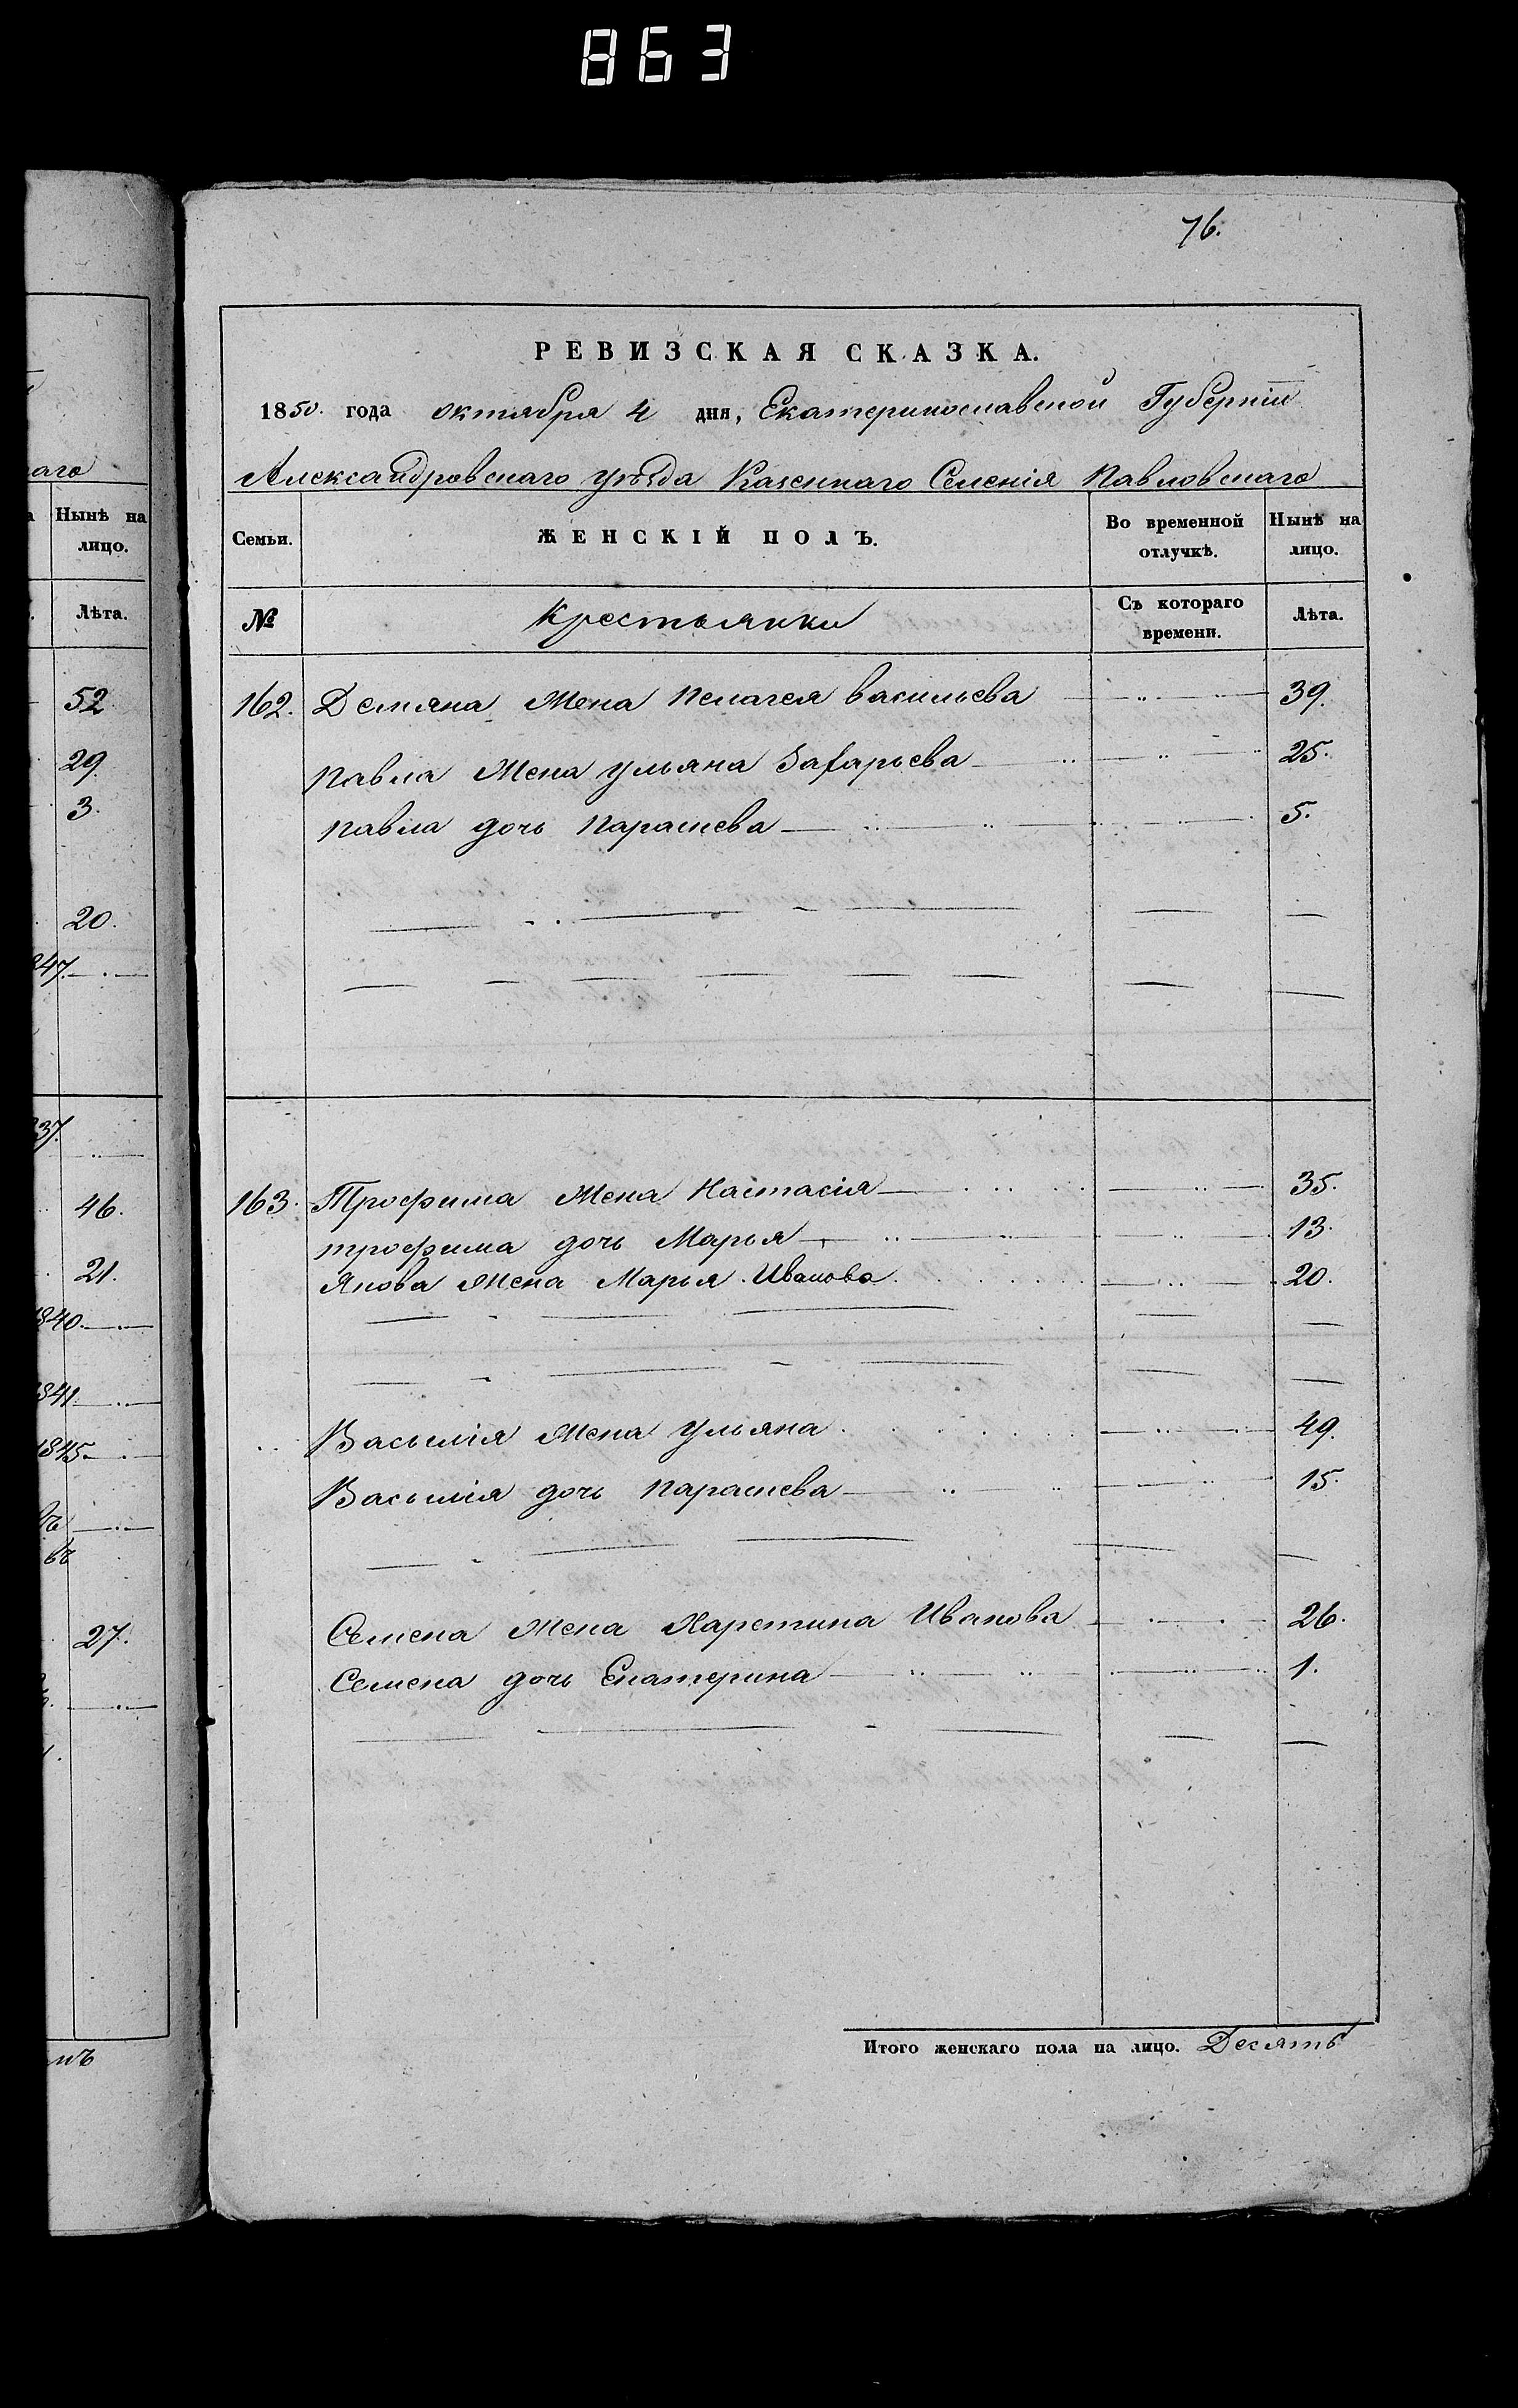 863
76.
РЕВИЗСКАЯ СКАЗКА.
1850. года октября 4 дня, Екатеринославской Губерніи
Александровскаго уѣзда Казеннаго Селенія Павловскаго
аго
Нынѣ на лицо.
Лѣта.
52
29.
3.
20.
847.
837.
46.
21.
1840.
1841.
1845.
27.
Семьи.
ЖЕНСКІЙ ПОЛЪ.
Во временной отлучкѣ.
Нынѣ на лицо.
№
Крестьянки
Съ котораго времени.
Лѣта.
162. Демяна Жена Пелагея васильева 39.
Павла Жена ульяна Захарьева 25.
Павла дочь Парасчева 5.
163. Трофима Жена Настасія 35.
трофима дочь Марья 13.
Якова Жена Марья Иванова 20.
Васылія Жена ульяна 49.
Васылія дочь парасчева 15.
Семена Жена Харетина Иванова 26.
Семена дочь Екатерина 1.
Итого женскаго пола на лицо. Десять